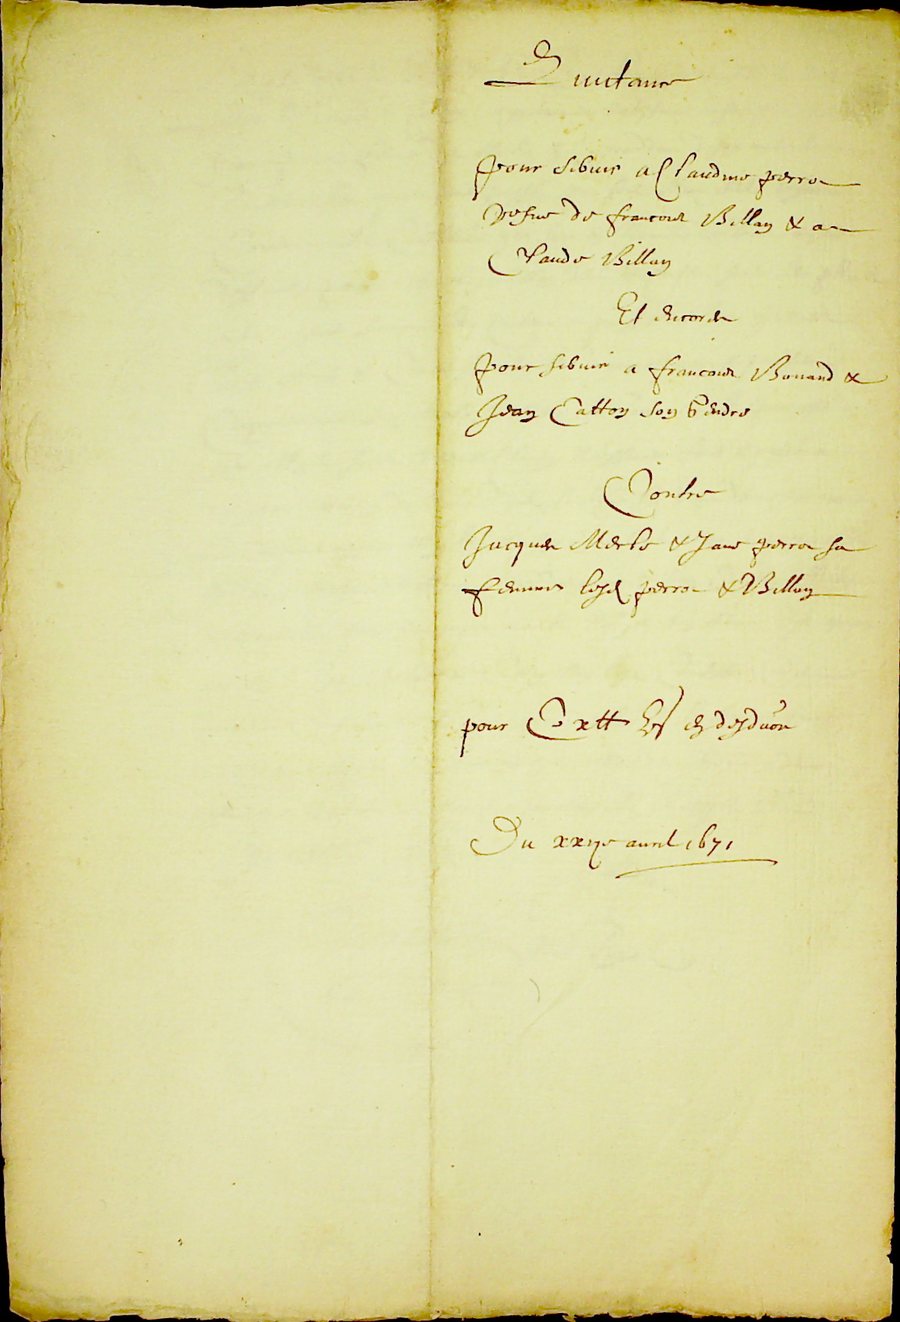 Quictance
pour servir a Claudine perro
vefve de francois Billay & a
Claude Billay
Et encores
pour servir a francois Bonard &
Jean Catton son gendre
Contre
Jacques Merle & Jane perro sa
femme lesd perro & Billay
pour
Du avril 1671